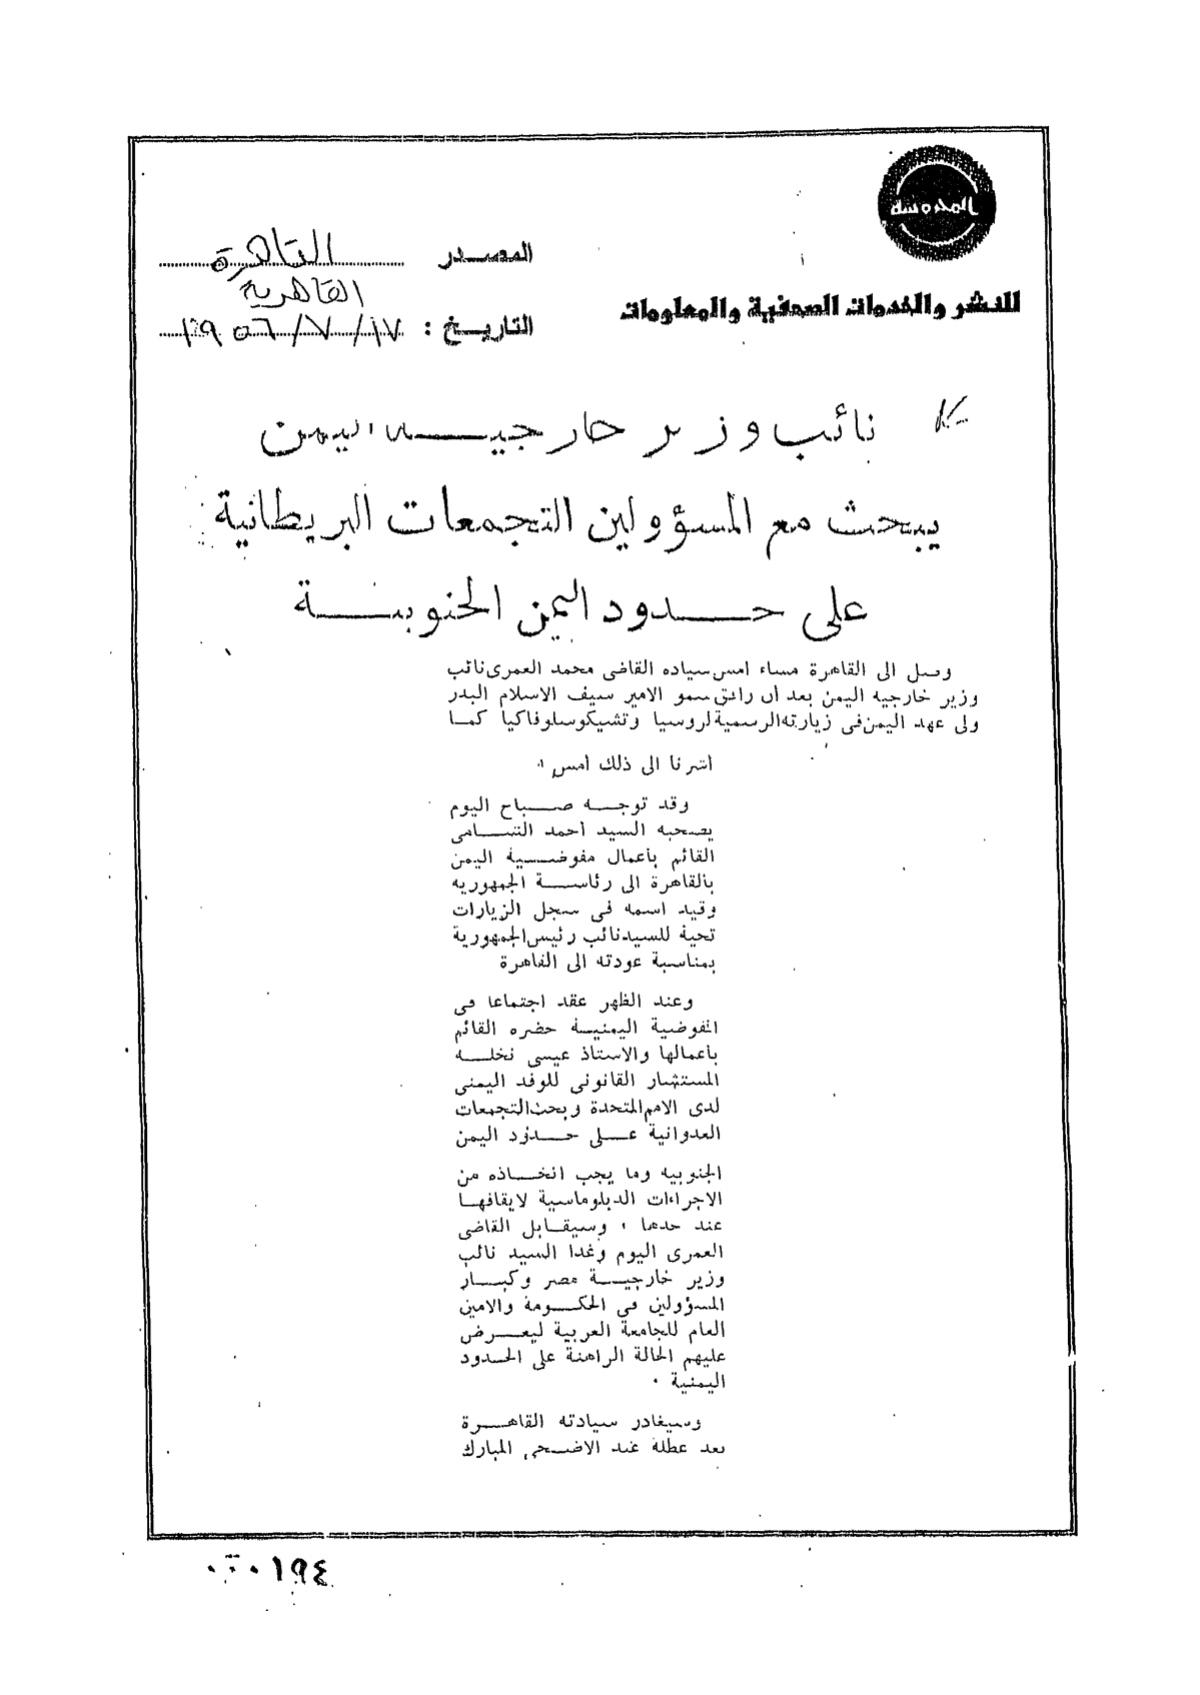 المحروسة
للنشر والخدمات الصحفية والمعلومات
المصدر القاهرة
القاهرية
التاريخ : ١٧/٧/١٩٥٦
نائب وزير خارجيه اليمن
يبحث مع المسؤولين التجمعات البريطانية
على حدود اليمن الجنوبية
وصل الى القاهرة مساء امس سياده القاضى محمد العمرى نائب
وزير خارجيه اليمن بعد ان رافق سمو الامير سيف الاسلام البدر
ولى عهد اليمن فى زيارته الرسمية لروسيا وتشيكوسلوفاكيا كما
اشرنا الى ذلك امس .
وقد توجه صباح اليوم
يصحبه السيد أحمد الشامى
القائم بأعمال مفوضية اليمن
بالقاهرة الى رئاسة الجمهوريه
وقيد اسمه فى سجل الزيارات
تحية للسيد نائب رئيس الجمهورية
بمناسبة عودته الى القاهرة
وعند الظهر عقد اجتماعا فى
المفوضية اليمنية حضره القائم
بأعمالها والاستاذ عيسى نخله
المستشار القانونى للوفد اليمنى
لدى الامم المتحدة وبحث التجمعات
العدوانية على حدود اليمن
الجنوبيه وما يجب اتخاذه من
الاجراءات الدبلوماسية لايقافها
عند حدها ، وسيقابل القاضى
العمرى اليوم وغدا السيد نائب
وزير خارجية مصر وكبار
المسؤولين فى الحكومة والامين
العام للجامعة العربية ليعرض
عليهم الحالة الراهنة على الحدود
اليمنية .
وسيغادر سيادته القاهرة
بعد عطلة عيد الاضحى المبارك
٠٠٠١٩٤